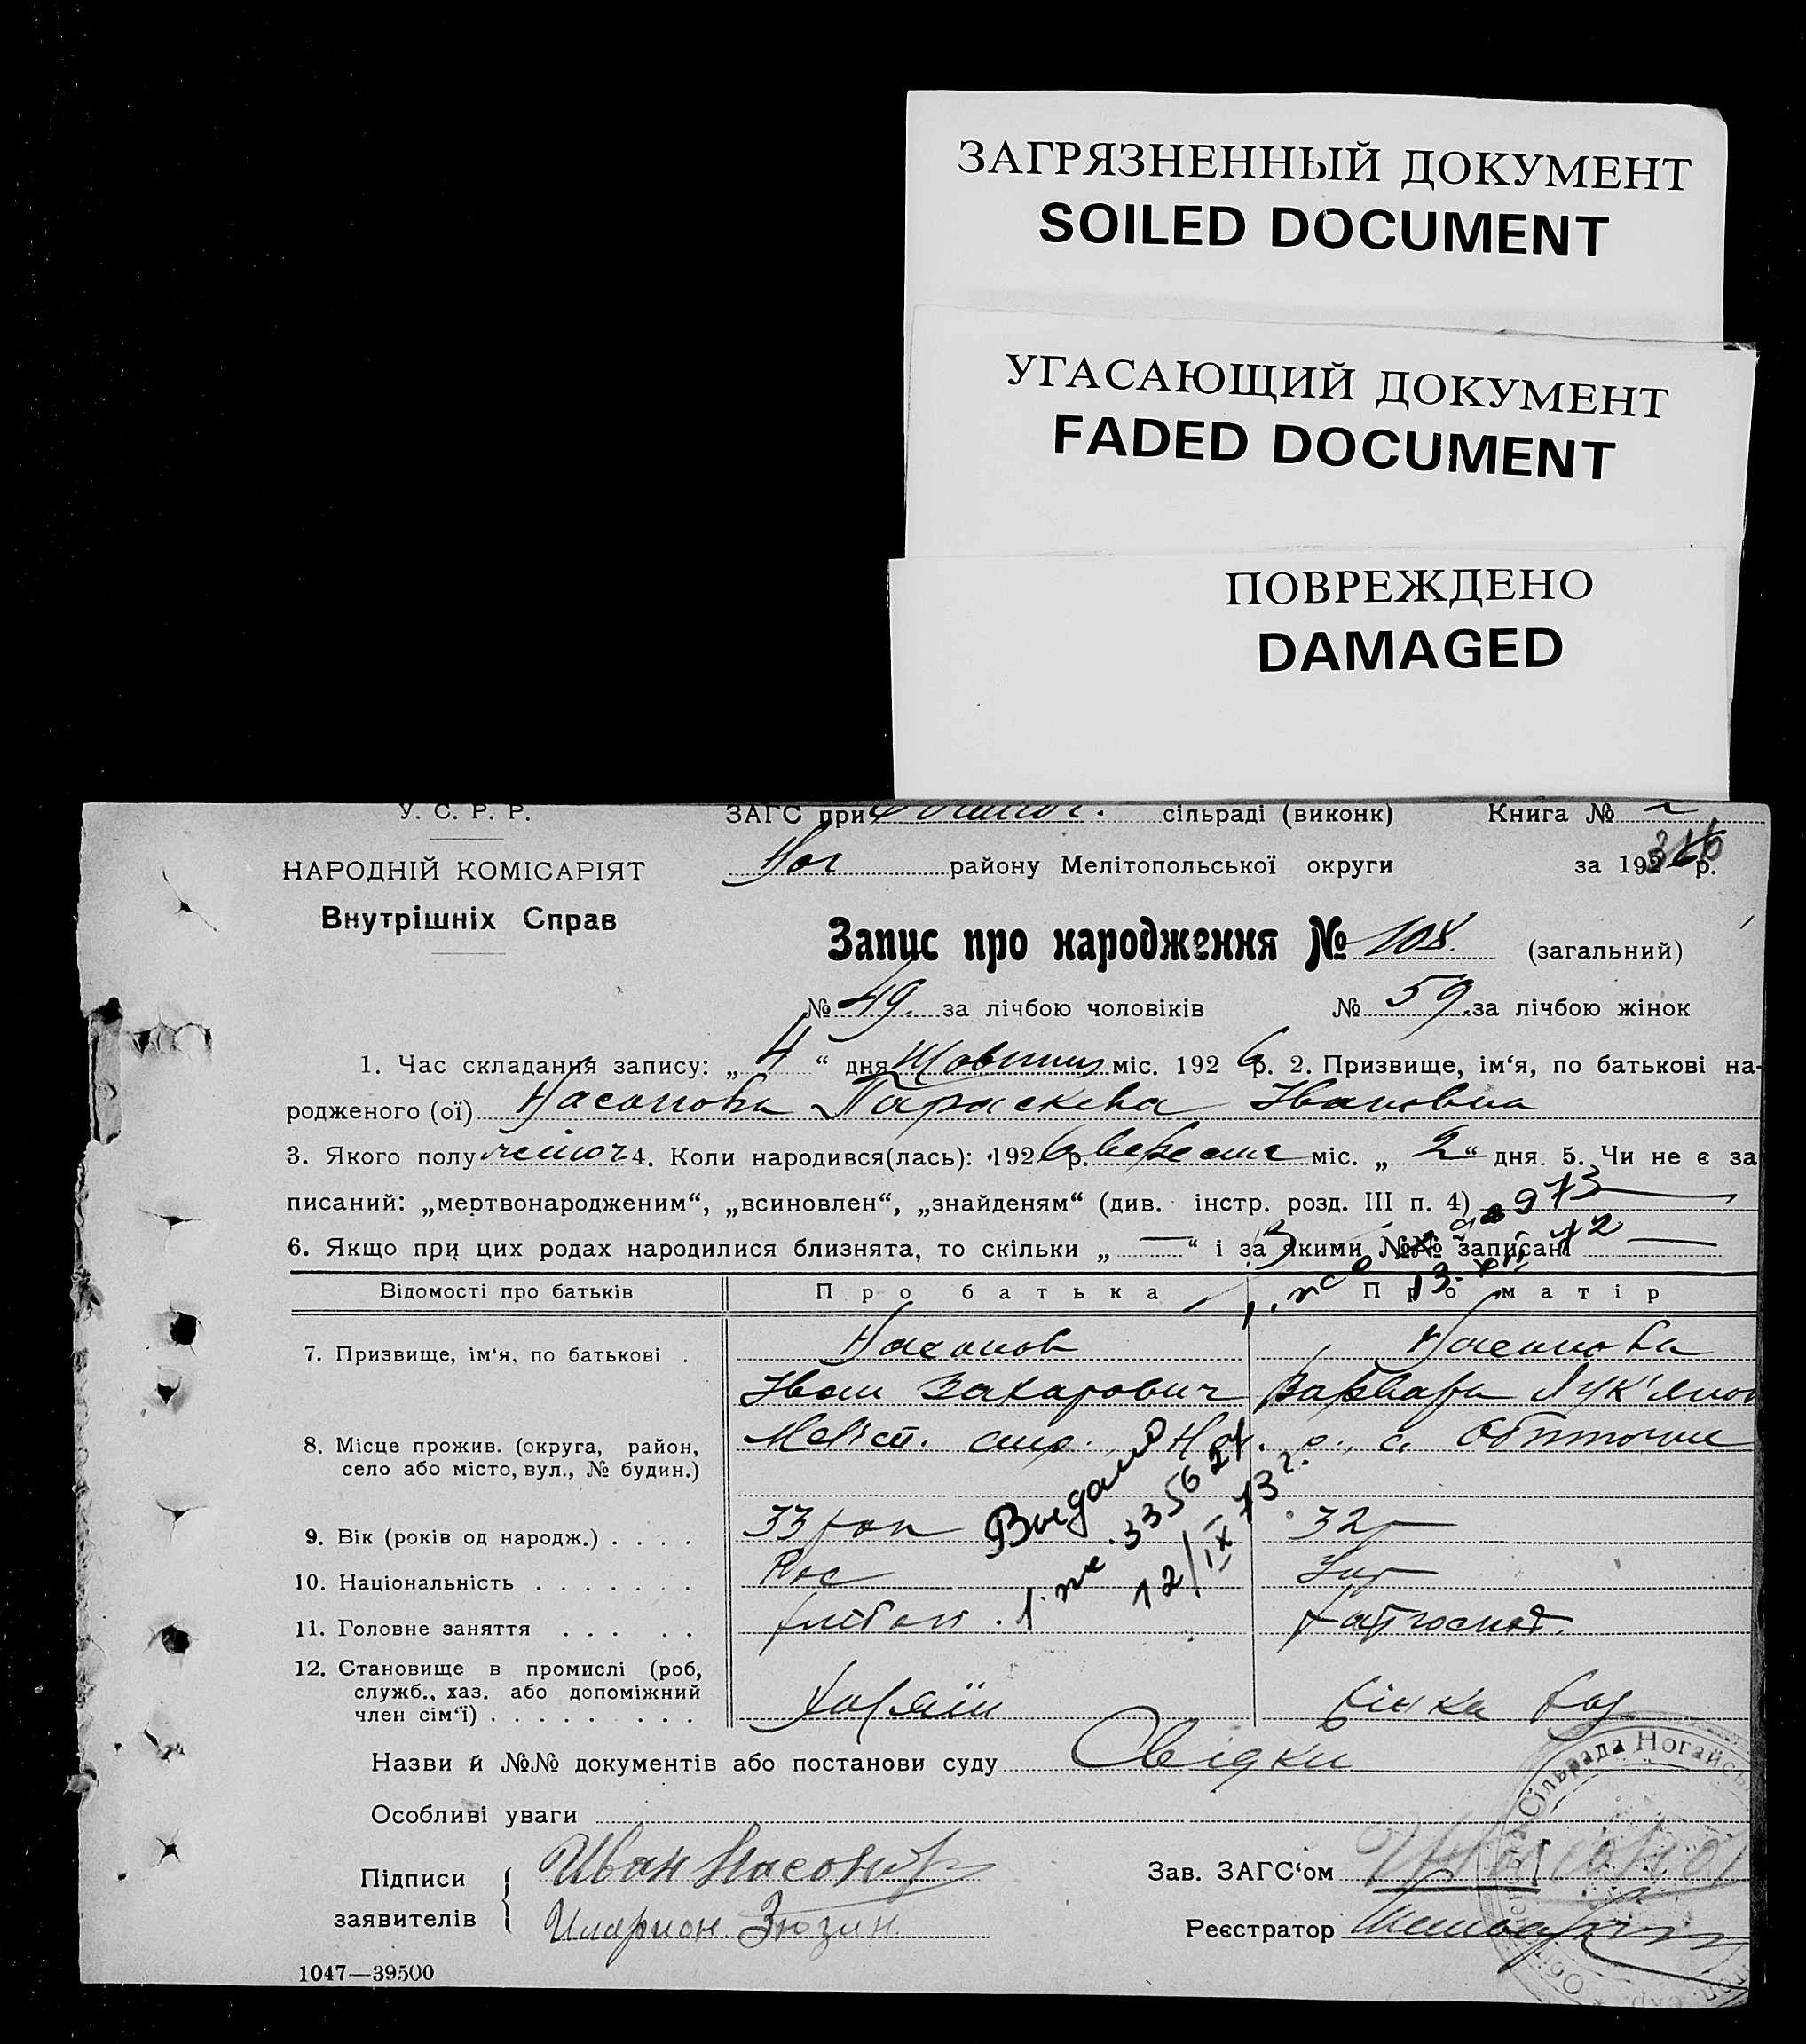 ЗАГРЯЗНЕННЫЙ ДОКУМЕНТ
SOILED DOCUMENT
УГАСАЮЩИЙ ДОКУМЕНТ
FADED DOCUMENT
ПОВРЕЖДЕНО
DAMAGED
У. С. Р. Р. ЗАГС при сільраді (виконк) Книга №
Ног району Мелітопольської округи за 192 р.
НАРОДНІЙ КОМІСАРІЯТ
Внутрішніх Справ
Запис про народження № 108. (загальний)
№ 49. за лічбою чоловіків № 59. за лічбою жінок
1. Час складання запису: „ 4 “ дня Жовтня міс. 192 6 р. 2. Призвище, ім‘я, по батькові на-
родженого (ої) Насонова Параскева Івановна
3. Якого полу жіноч 4. Коли народився(лась): 192 6 р. вересня міс. „ 2 “ дня. 5. Чи не є за
писаний: „мертвонародженим“, „всиновлен“, „знайденям“ (див. інстр. розд. III п. 4)
6. Якщо при цих родах народилися близнята, то скільки „ — “ і за якими №№ записані —
Відомості про батьків Про батька Про матір
7. Призвище, ім‘я, по батькові . Насонов Насонова
Іван Захарович Варвара Лук'янов
8. Місце прожив. (округа, район, Меліт. окр., Ног. р., с. Обиточне
село або місто, вул., № будин.)
9. Вік (років од народж.) . . . . 33 рок 32
Выдано
335624
12/IX 73 г.
10. Національність . . . . . . . Рос
11. Головне заняття . . . . . хлібор
12. Становище в промислі (роб,
служб., хаз. або допоміжний
член сім‘ї) . . . . . . . . . хазяїн жінка хаз
Назви й №№ документів або постанови суду Свідки
Особливі уваги
Підписи заявителів Иван Насонов
Иларион Зюзин
Зав. ЗАГС‘ом
Реєстратор
Сільрада Ногайсь
1047—39500